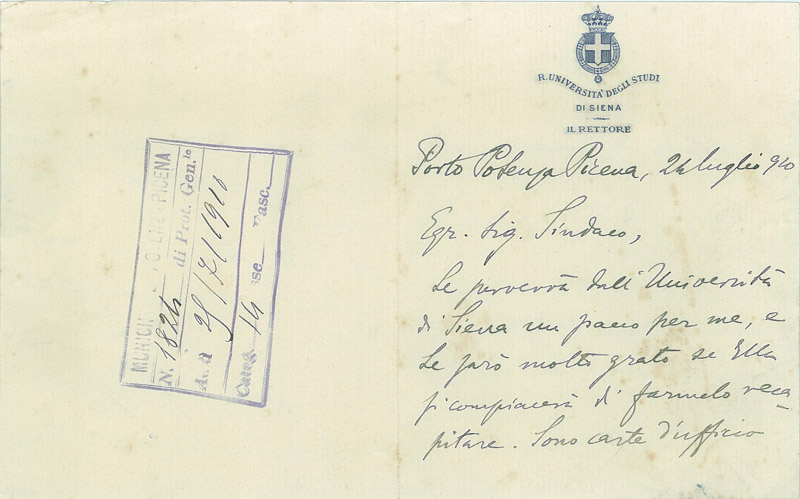 R. UNIVERSITÀ DEGLI STUDI
DI SIENA
IL RETTORE
Porto Potenza Picena, 24 luglio 910
Egr. Sig. Sindaco,
Le perverrà dall'Università
di Siena un pacco per me, e
Le sarò molto grato se Ella
si compiacerà di farmelo reca-
pitare. Sono carte d'ufficio
MUNICIPIO POTENZA PICENA
N. 1824 di Prot. Gen.le
Add. 25/7/1910
Categ. 14 sse Fasc.